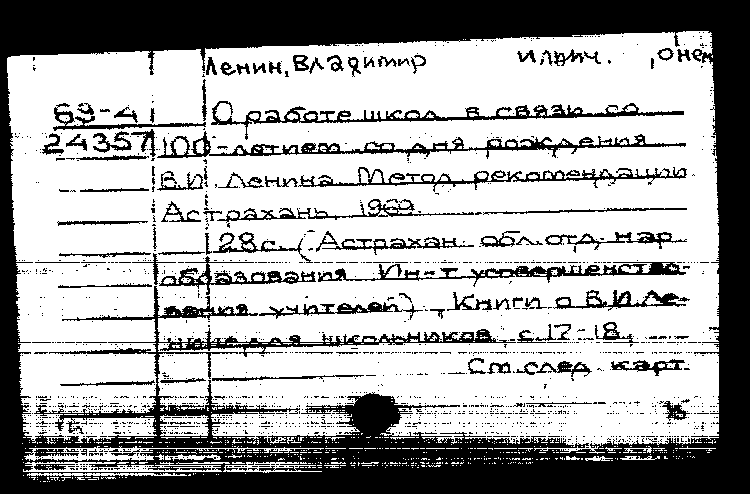 Ленин, Владимир Ильич. , о нем
69-4 О работе школ в связи со
24357 100-летием со дня рождения
В.И. Ленина. Метод. рекомендации
Астрахань, 1969.
28с. (Астрахан. обл. отд. нар.
образования. Ин-т усовершенство-
вания учителей). Книги о В.И. Ле-
нине для школьников, с. 17-18.
См. след. карт.